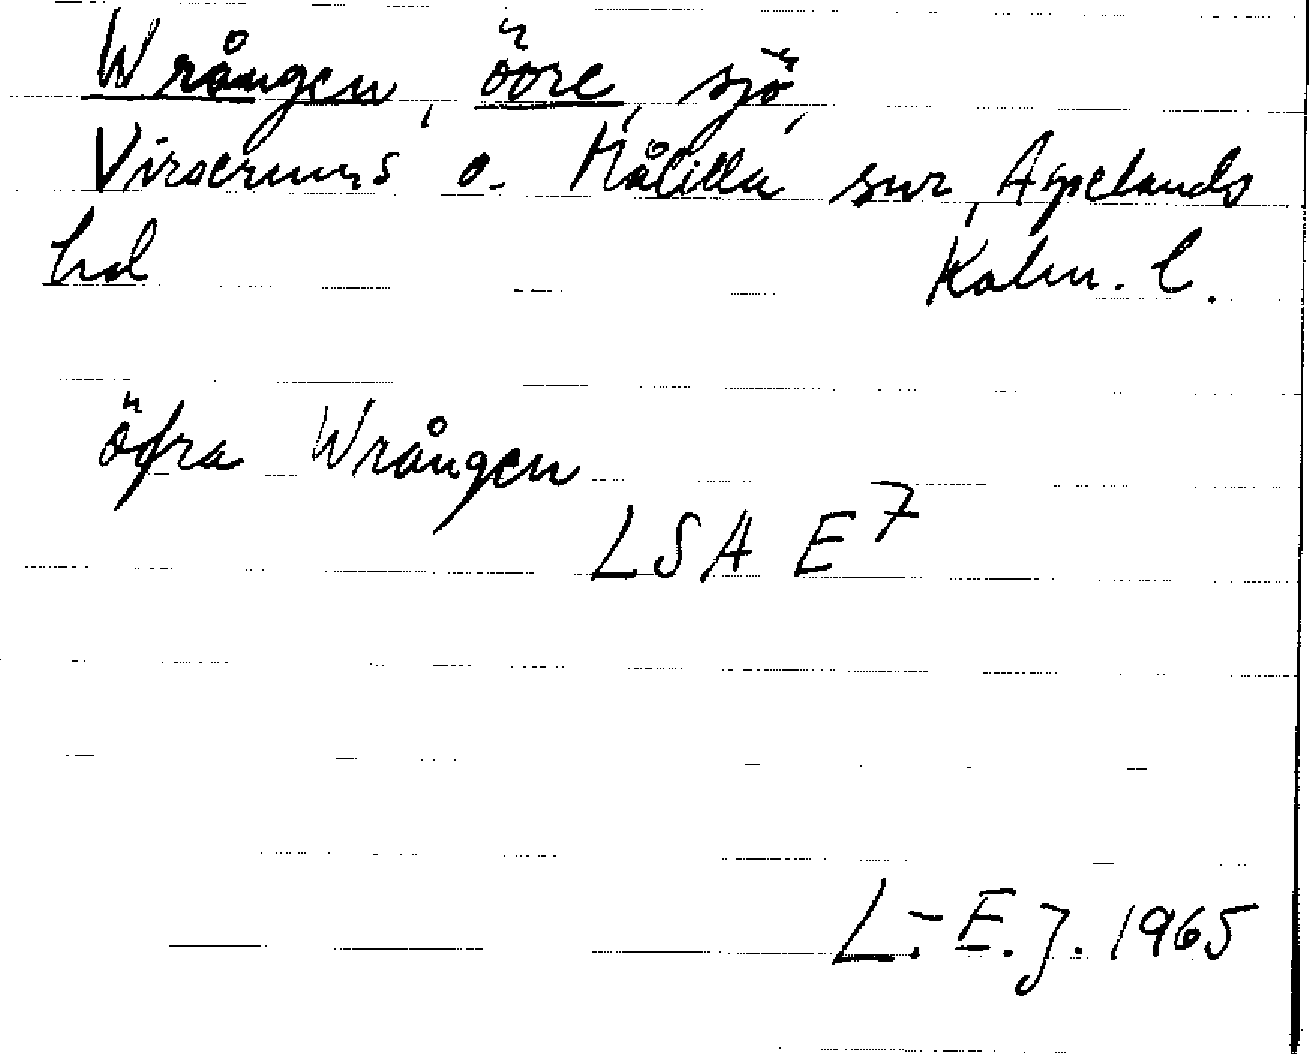 Wrången, övre, sjö,
Virserums o. Målilla snr, Aspelands
hd Kalm. l.
öfra Wrången
LSA E7
L.-E. J. 1965